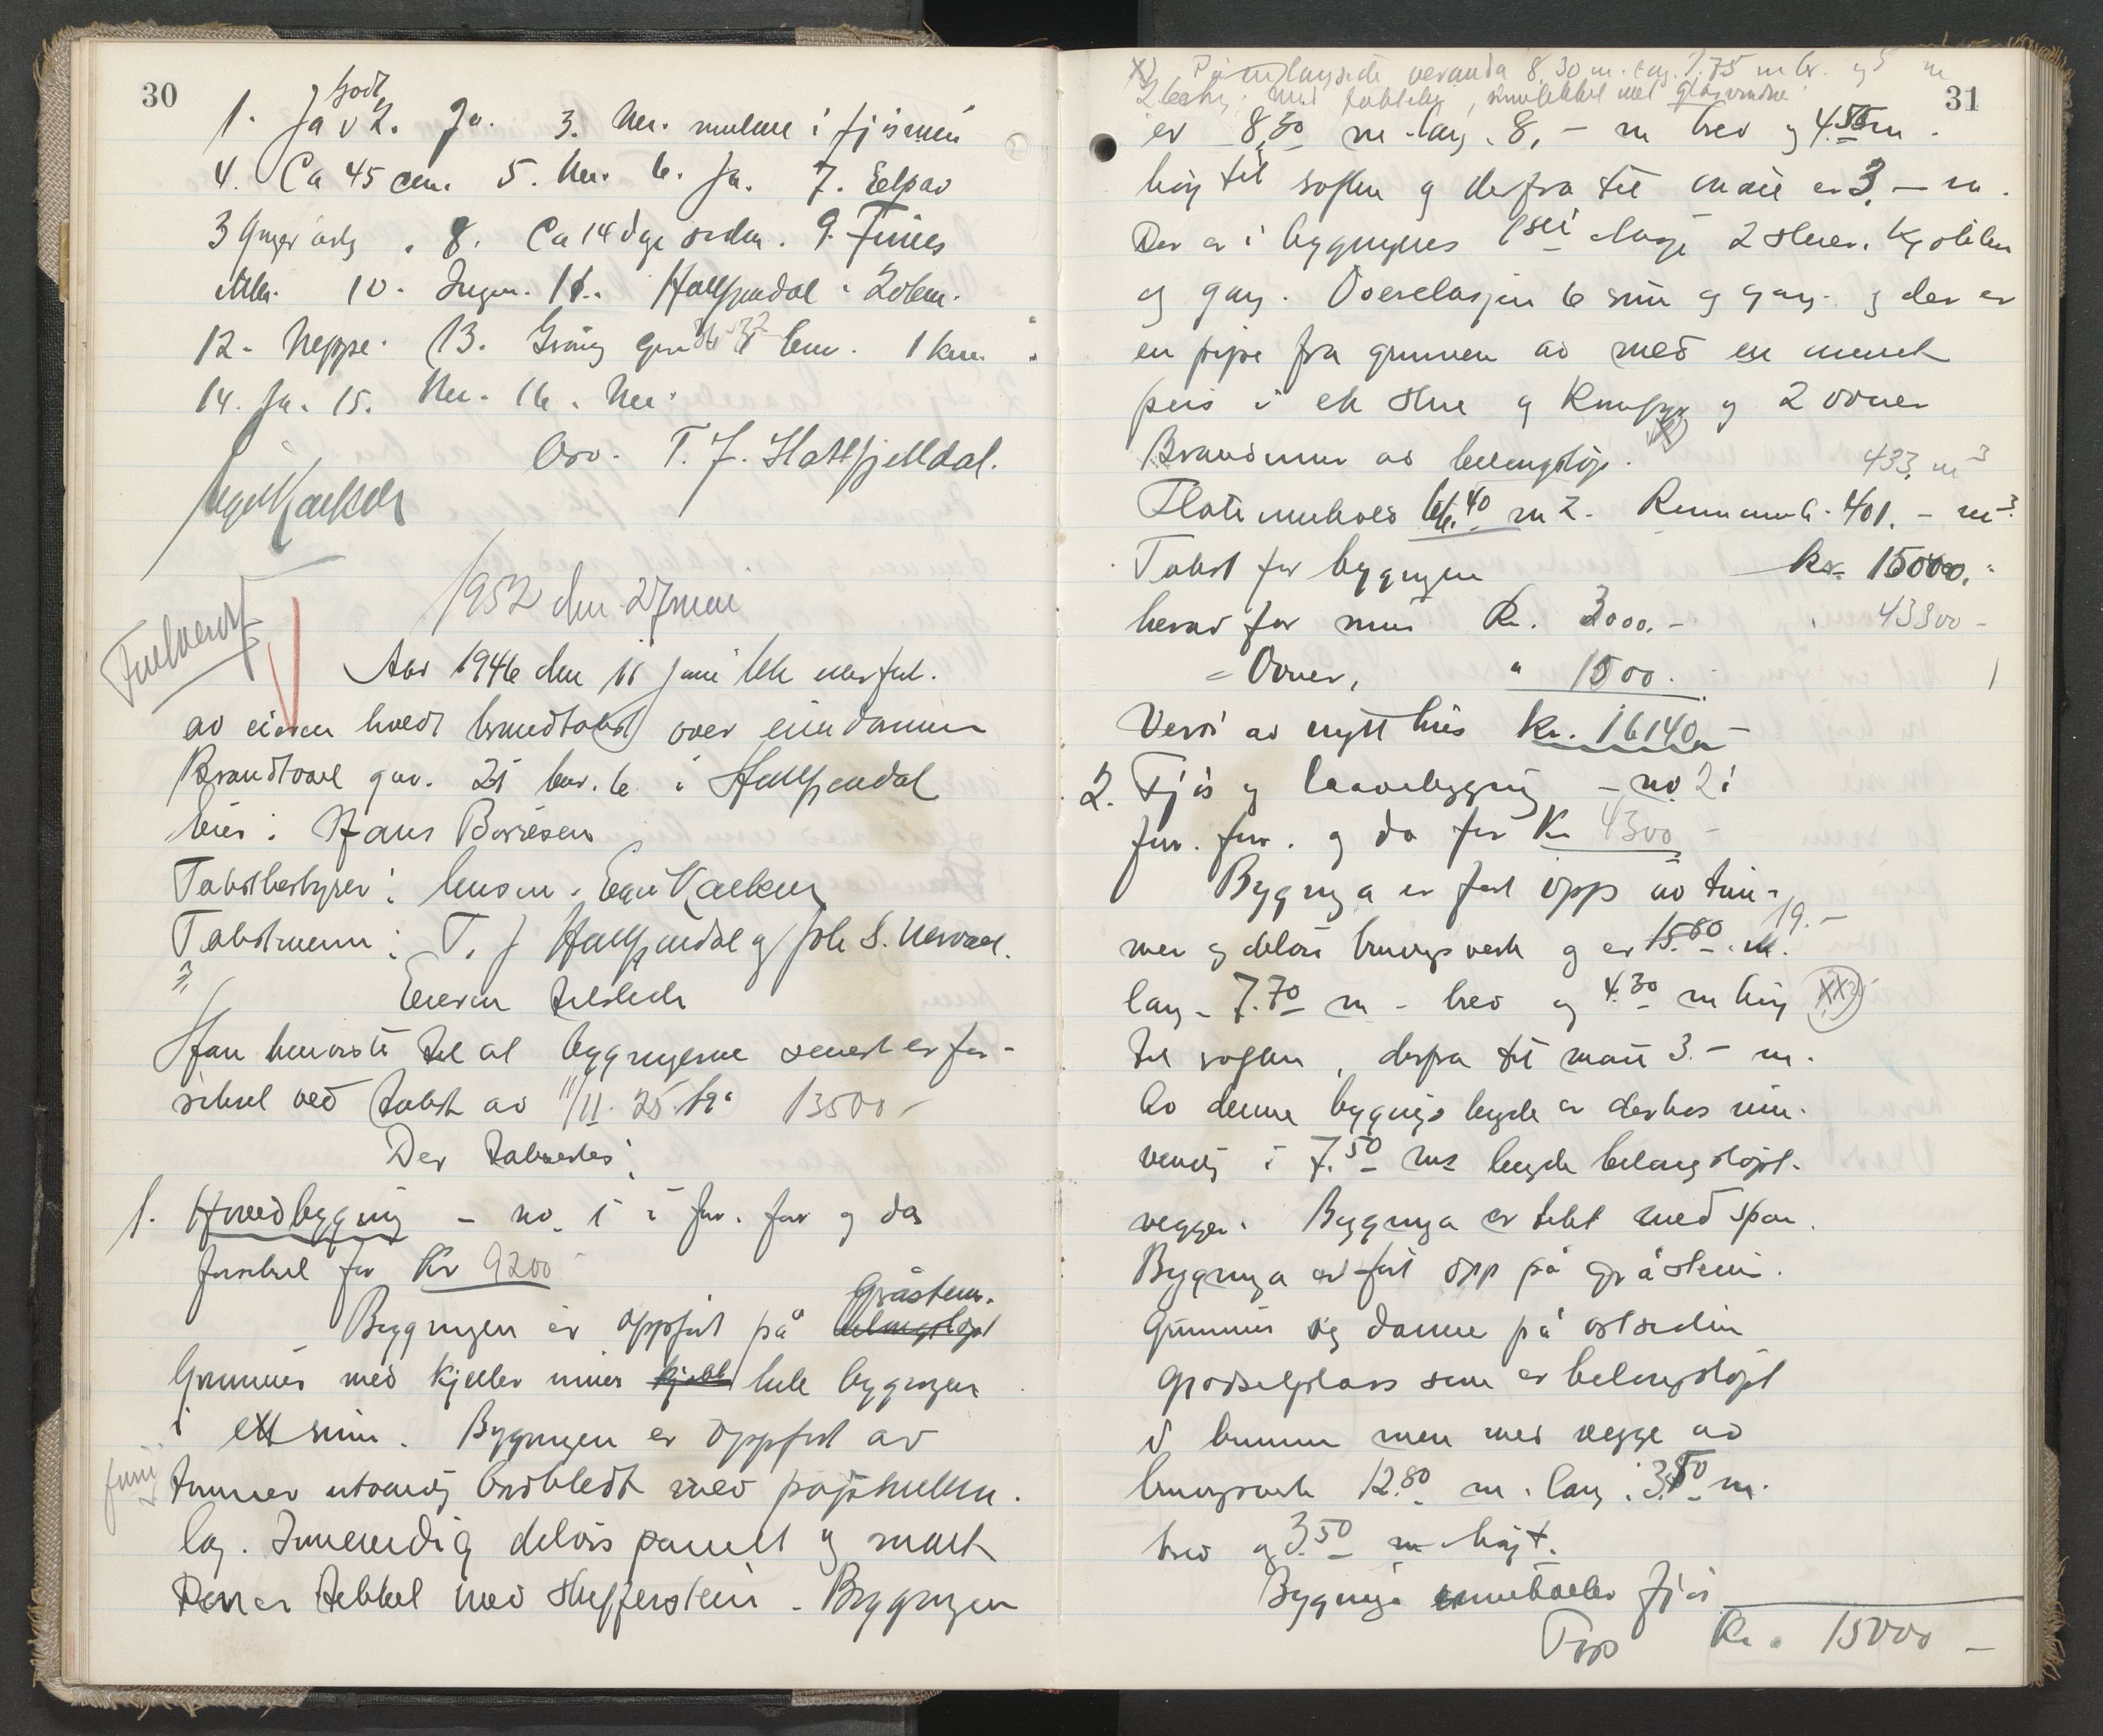 30
godt
1. Ja v 2. Ja. 3. Nei. mulene i fjösmuri
4. Ca 45 cm. 5. Nei. 6. Ja. 7.
3 ganger årlig. 8. Ca 14 dage siden. 9. Finnes
ikke. 10. Ingen. 11. Hattfjeldal. 20 km.
12. Neppe. 13. 1 km.
14. Ja. 15. Nei. 16. Nei.
Oro. T. J. Hattfjelldal.
1952 den 27 mai
Fullverdi
Aar 1946 den 11 juni ble
av eieren holdt brandtakst over eiendommen
Brandtoel gnr. 21 bnr. 6 i Hattfjeldal
Eier: Hans Börresen
Takstbestyrer: Lensm. Egil Kaeken
Takstmenn: T. J. Hattfjeldal og Joh S. Nervoel.
Eieren tilstede
Han henviste til at bygningerne senest er for-
sikret ved takst av 11/11. 25 kr. 13500 -
Der takseredes:
1. Hovedbygning - no. 1 i for. forr og da
forsikret for Kr 9200
Gråstein.
Bygningen er oppført på
Grunnmur med kjeller under hele bygningen
i ett rum. Bygningen er oppført av
tømmer utvendig bordkledt med papp mellem.
lag. Innvendig delvis panelt og malt
Den er tekket med skifferstein. Bygningen
31
X) På langside veranda 8.30 m. lang. 1.75 m br. og m
med glasvindue
er 8,30 m. lang. 8, - m bred og 4.50 m.
høg til røsten og derfra til møne er 3, - m.
Der er i bygningens 1ste etage 2 stuer, kjøkken
og gang. Overetasjen 6 rum og gang. og der er
en pipe fra grunnen av med en muret
peis i ei stue og komfyr og 2 ovner
Brandmur av betongstøp. X)
433, m3
Flateinnhold 66.40 m2. Rominnh. 401. - m3.
Takst for bygningen kr. 15000.
herav for mur Kr. 3000. -
43300 -
= Ovner, " 1500.
Verdi av nytt hus kr. 16140. -
2. Fjøs og laavebygning - no 2 i
forr. forr. og da for Kr 4300 -
Bygninga er ført opp av tøm-
19. -
mer og delvis bindingsverk og er 15.80 m.
lang - 7.70 m - bred og 4.30 m høg XX)
til røsten, derfra til møne 3. - m.
Av denne bygnings lengde er derhos inn-
vendig i 7.50 ms lengde betongstøpt.
vegger. Bygninga er tekt med spon.
Bygninga er ført opp på gråsteins
Grunnmur og denne på østsiden
gjødselplass som er betongstøpt
i bunnen men med vegge av
bindingsverk 12.80 m. lang. 3.50 m.
bred og 3.50 m høgt.
Bygninga inneholder fjøs
Trsp Kr. 15000 -